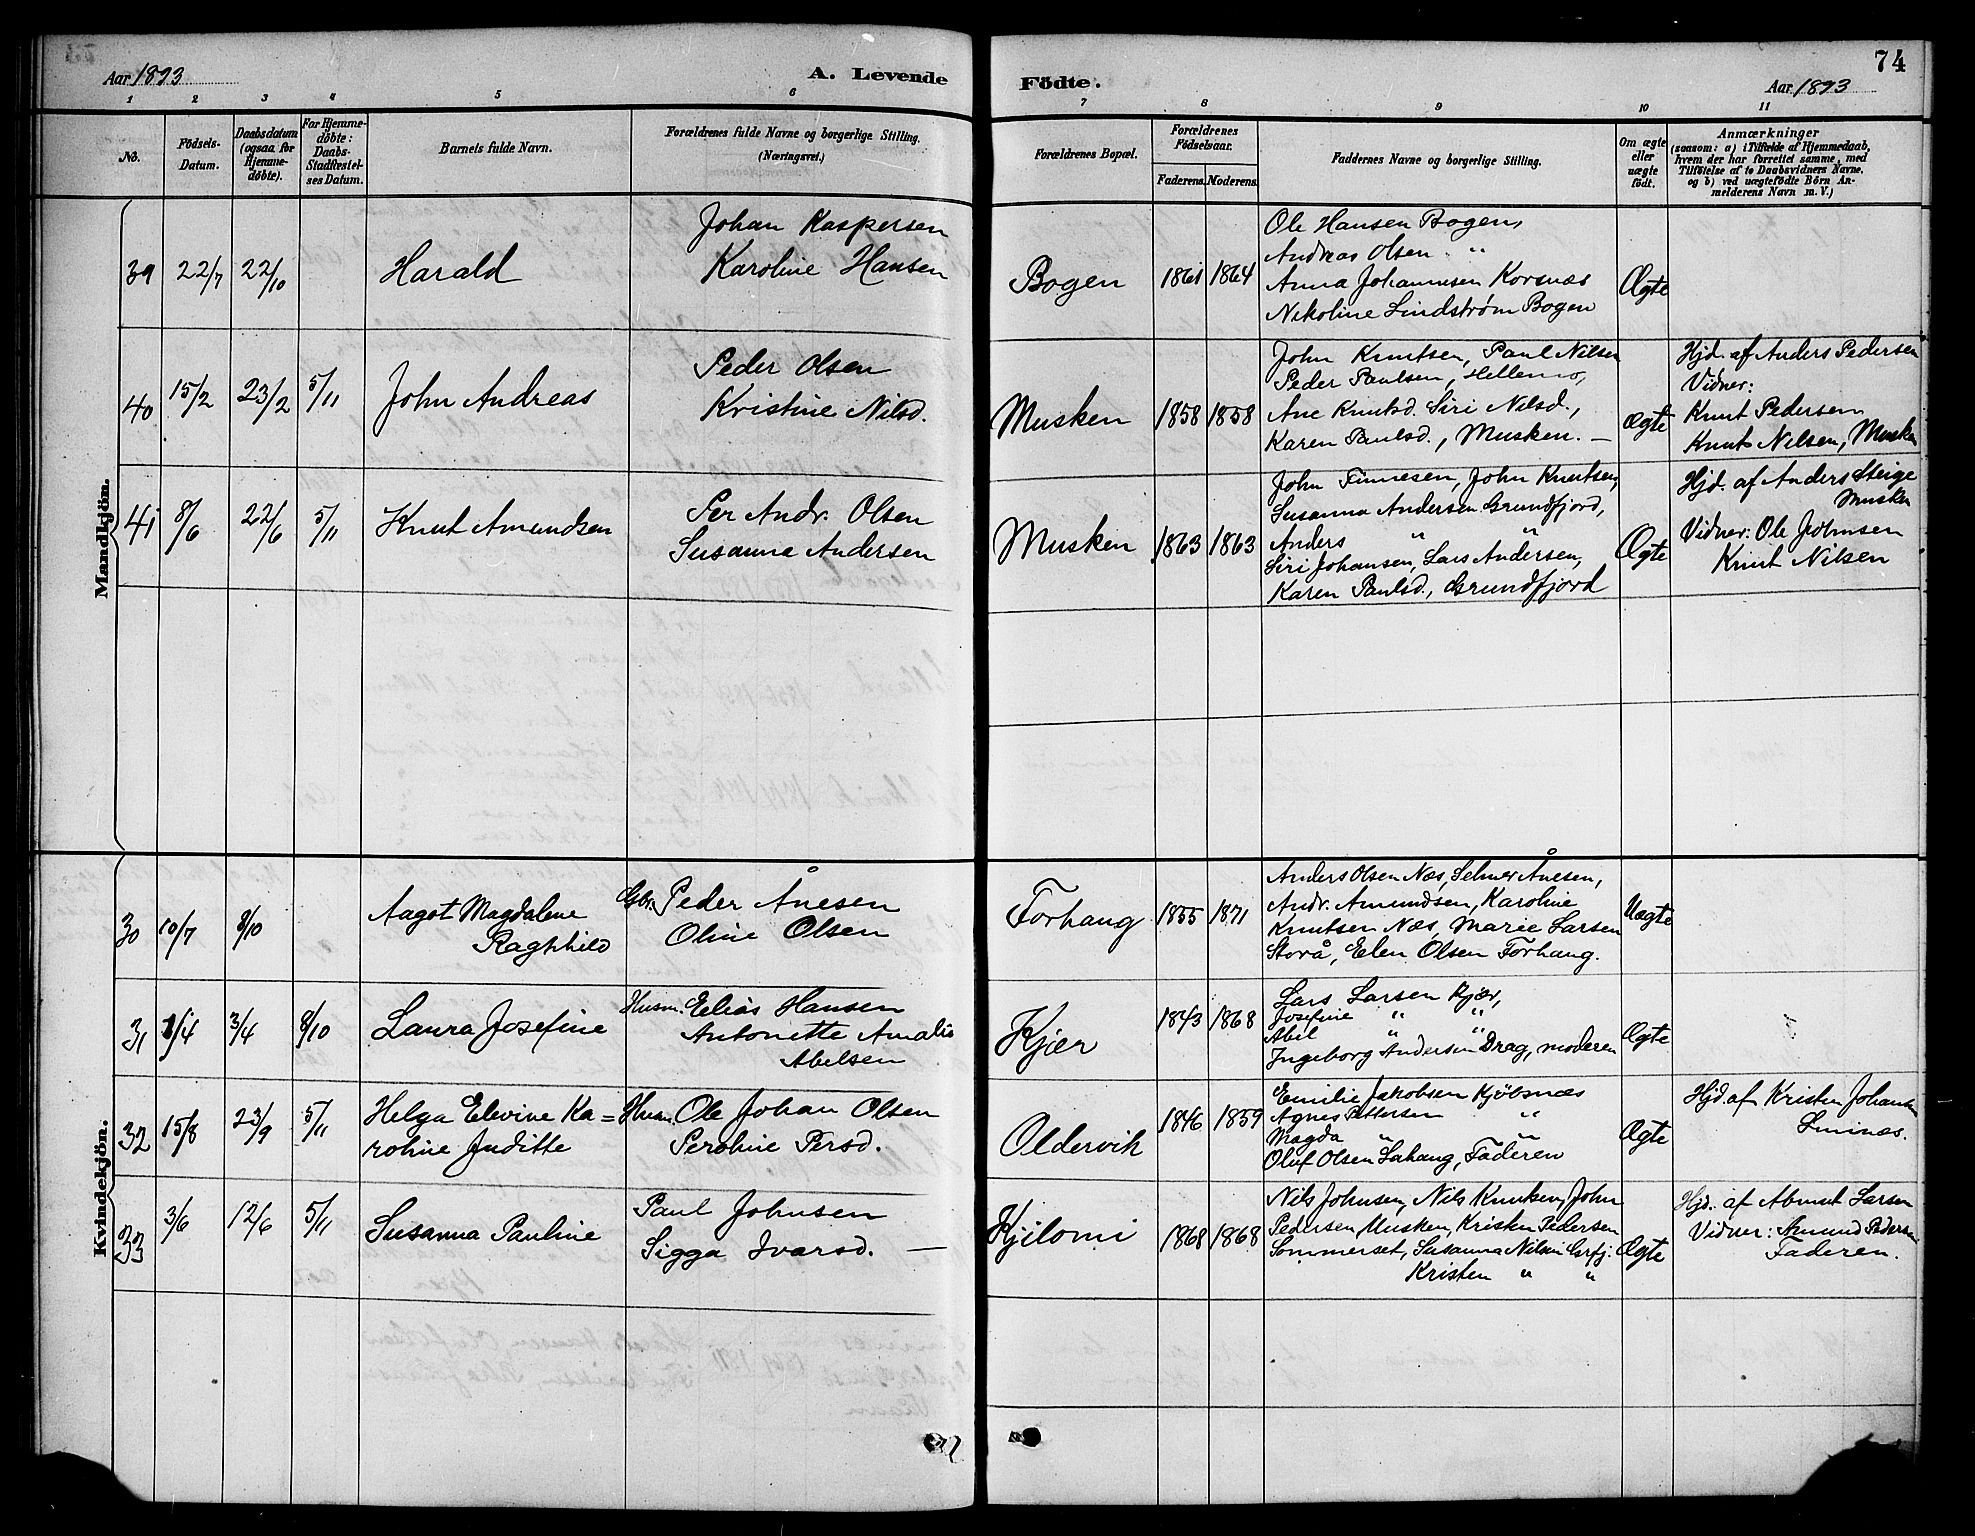 Aar 1893
A. Levende
Födte.
Aar 1893
74
1 2 3 4 5 6 7 8 9 10 11
No.
Födsels-
Datum.
Daabsdatum
(ogsaa for
Hjemme-
döbte).
For Hjemme-
döbte:
Daabs-
Stadfæstel-
ses Datum.
Barnets fulde Navn.
Forældrenes fulde Navne og borgerlige Stilling.
(Næringsvei.)
Forældrenes Bopæl.
Forældrenes
Födselsaar.
Faderens. Moderens.
Faddernes Navne og borgerlige Stilling.
Om ægte
eller
uægte
født.
Anmærkninger
(saasom: a) i Tilfælde af Hjemmedaab,
hvem der har forrettet samme, med
Tilföielse af to Daabsvidners Navne,
og b) ved uægtefödte Börn An-
melderens Navn m. V.)
Mandkjön.
39 22/7 22/10 Harald
Johan Kaspersen
Karoline Hansen
Bogen 1861 1864
Ole Hansen Bogen,
Andreas Olsen "
Anna Johannesen Korsnæs
Nikoline Lindstrøm Bogen
Ægte
40 15/2 23/2 5/11 John Andreas
Peder Olsen
Kristine Nilsd.
Musken 1858 1858
John Knutsen, Paul Nilsen
Peder Paulsen, Hellemo,
Ane Knutsd. Siri Nilsd.,
Karen Paulsd., Musken. —
Ægte
Hjd. af Anders Pedersen
Vidner:
Knut Pedersen
Knut Nilsen, Musken
41 8/6 22/6 5/11 Knut Amundsen
Per Andr. Olsen
Susanna Andersen
Musken 1863 1863
John Finnesen, John Knutsen,
Susanna Andersen Grundfjord,
Anders " "
Siri Johansen, Lars Andersen,
Karen Paulsd., Grundfjord
Ægte
Hjd. af Anders Steige
Musken
Vidner: Ole Johnsen
Knut Nilsen
Kvindekjön.
30 10/7 8/10 Aagot Magdalene
Ragnhild
Gbr. Peder Ånesen
Oline Olsen
Forhang 1855 1871
Anders Olsen Næs, Selmer Ånesen,
Andr. Amundsen, Karoline
Knutsen Næs, Marie Larsen
Storå, Elen Olsen Forhang.
Uægte
31 1/4 3/4 8/10 Laura Josefine
Husm. Eelias Hansen
Antonette Amalie
Abelsen
Kjær 1843 1868
Lars Larsen Kjær,
Josefine " "
Abel " "
Ingeborg Andersen Drag, moderen
Ægte
32 15/8 23/9 5/11 Helga Elevine Ka=
roline Juditte
Husm. Ole Johan Olsen
Peroline Persd.
Oldervik 1846 1859
Emilie Jakobsen Kjöbsnæs
Agnes Pettersen "
Magda " "
Oluf Olsen Lahaug, Faderen
Ægte
Hjd. af Kristen Johansen
33 3/6 12/6 5/11 Susanna Pauline
Paul Johnsen
Sigga Ivarsd. —
Kjilomi 1868 1868
Nils Johnsen, Nils Knutsen, John
Pedersen Musken, Kristen Pedersen
Sommerset, Susanna Nilsen Grfj.
Kristen " "
Ægte
Hjd. af Larsen
Vidner: Amund Pedersen
Faderen.